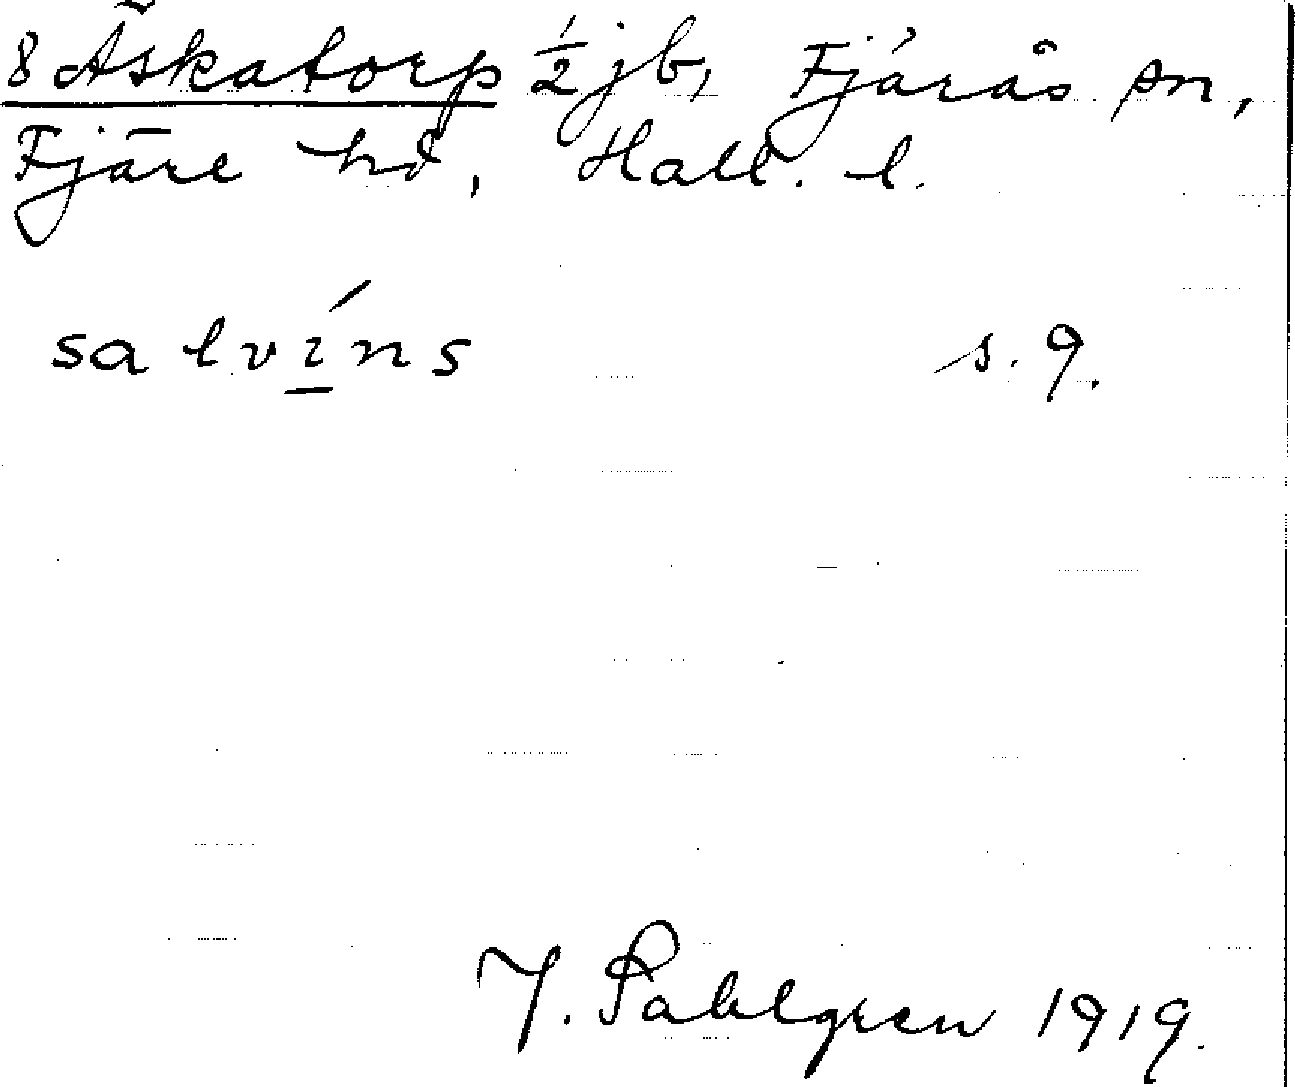 8 Äskatorp ½ jb, Fjärås sn,
Fjäre hd, Hall. l.
salvíns s. 9.
J. Sahlgren 1919.